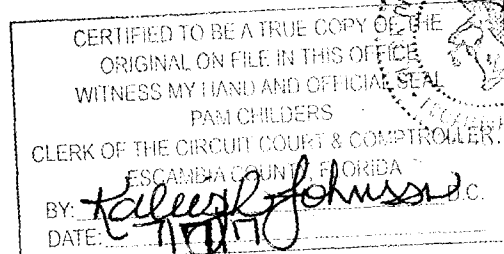 CERTIFIED TO BE A TRUE COPY OF THE
ORIGINAL ON FILE IN THIS OFFICE
WITNESS MY HAND AND OFFICIAL SEAL
PAM CHILDERS
CLERK OF THE CIRCUIT COURT & COMPTROLLER
ESCAMBIA COUNTY, FLORIDA
BY: Johnson D.C.
DATE: